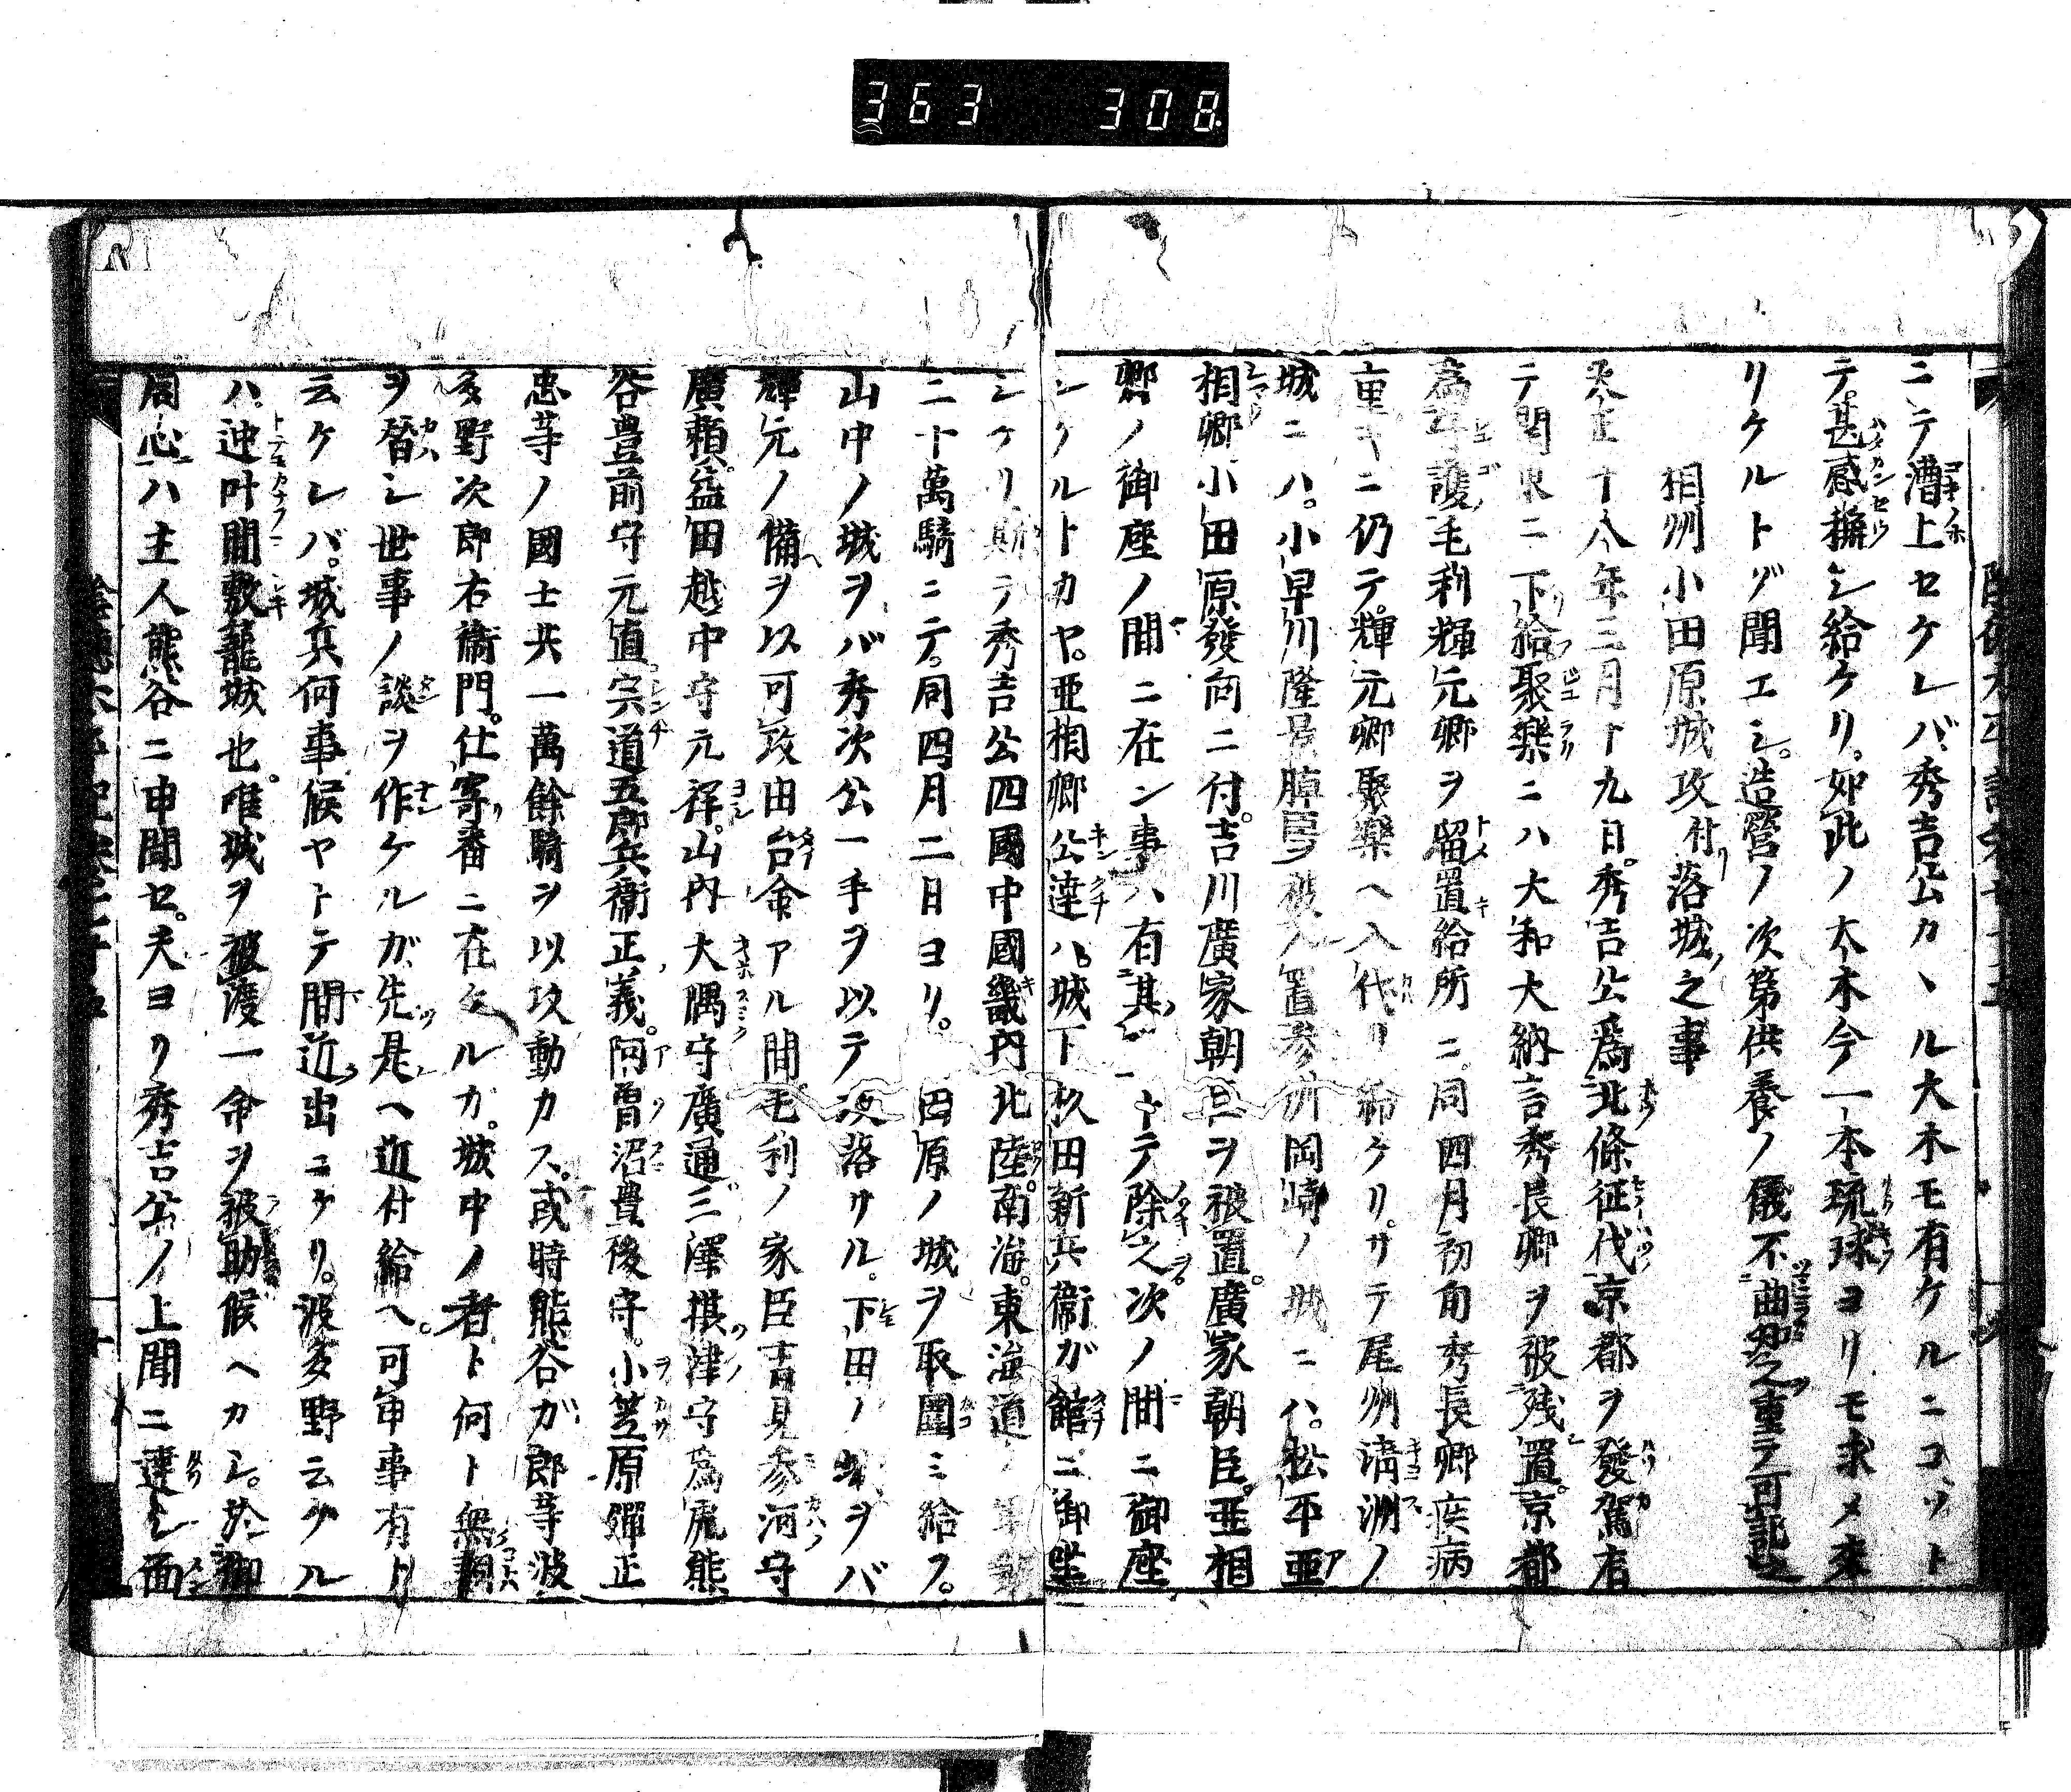 363 308
ニテ漕上セケレバ秀吉公カヽル大木モ有ケルニコソト
テ甚感稱シ給ケリ如此ノ大木今一本琉球ヨリモ求メ来
リケルトゾ聞エシ造營ノ次第供養ノ儀不曲
相州小田原城攻付落城之事
天正十八年三月十九日秀吉公爲北條征伐京都ヲ發駕有
テ関東ニ下給聚樂ニハ大和大納言秀長卿ヲ被残置京都
為守護毛利輝元卿ヲ留置給所ニ同四月初旬秀長卿疾病
重キニ仍テ輝元卿聚樂ヘ入代リ給ケリサテ尾州清洲ノ
城ニハ小早川隆景勝ヲ被入置参州岡崎ノ城ニハ松平亜
相卿小田原發向ニ付吉川廣家朝臣ヲ被置廣家朝臣亜相
卿ノ御座ノ間ニ在ン事ハ有其トテ除之次ノ間ニ御座
シケルトカヤ亜相卿公達ハ城下杦田新兵衛ガ館ニ御坐
シケリ斯テ秀吉公四國中國畿内北陸南海東海道ノ軍勢
二十萬騎ニテ同四月二日ヨリ田原ノ城ヲ取圍ミ給フ
山中ノ城ヲバ秀次公一手ヲ以テ攻落サル下田ノ城ヲバ
輝元ノ備ヲ以可攻由台命アル間毛利ノ家臣吉見参河守
廣頼益田越中守元祥山内大隅守廣通三澤摂津守為虎熊
谷豊前守元直宍道五郎兵衛正義阿曽沼豊後守小笠原彈正
忠等ノ國士共一萬餘騎ヲ以攻動カス或時熊谷ガ郎等波
多野次郎右衛門仕寄番ニ在ケルカ城中ノ者ト何ト無詞
ヲ替シ世事ノ談ヲ作ケルガ先是ヘ近付給ヘ可申事有ト
云ケレバ城兵何事候ヤトテ間近出ニケリ波多野云ケル
ハ迚叶間敷籠城也唯城ヲ被渡一命ヲ被助候ヘカシ於御
同心ハ主人熊谷ニ申聞セ夫ヨリ秀吉公ノ上聞ニ達シ面